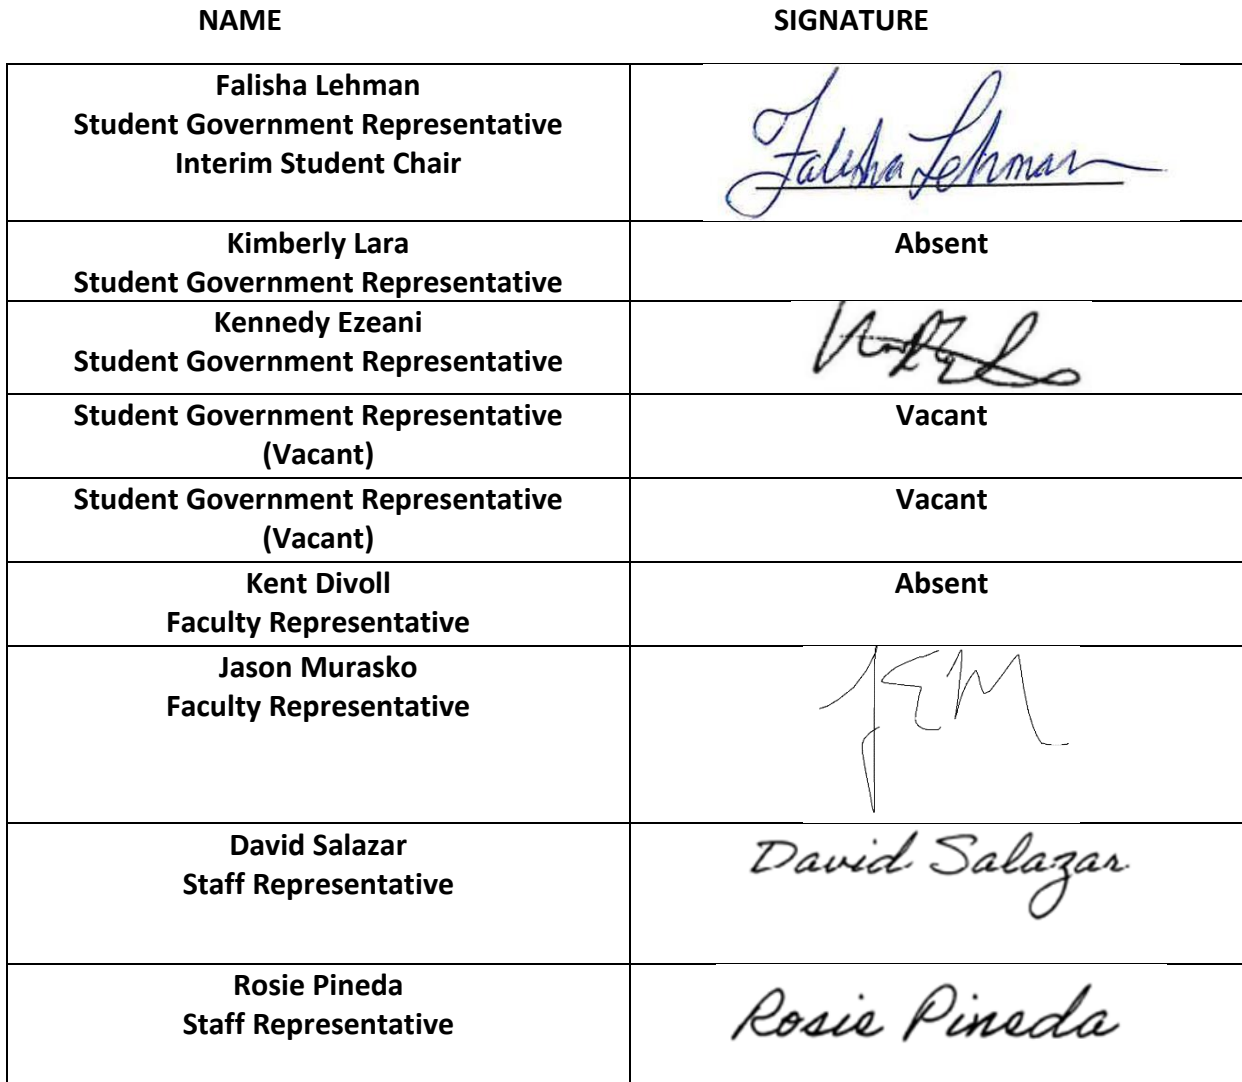 NAME SIGNATURE
Falisha Lehman
Student Government Representative
Interim Student Chair
Falisha Lehman
Kimberly Lara
Student Government Representative
Absent
Kennedy Ezeani
Student Government Representative
Student Government Representative
(Vacant)
Vacant
Student Government Representative
(Vacant)
Vacant
Kent Divoll
Faculty Representative
Absent
Jason Murasko
Faculty Representative
JEM
David Salazar
Staff Representative
David Salazar
Rosie Pineda
Staff Representative
Rosie Pineda